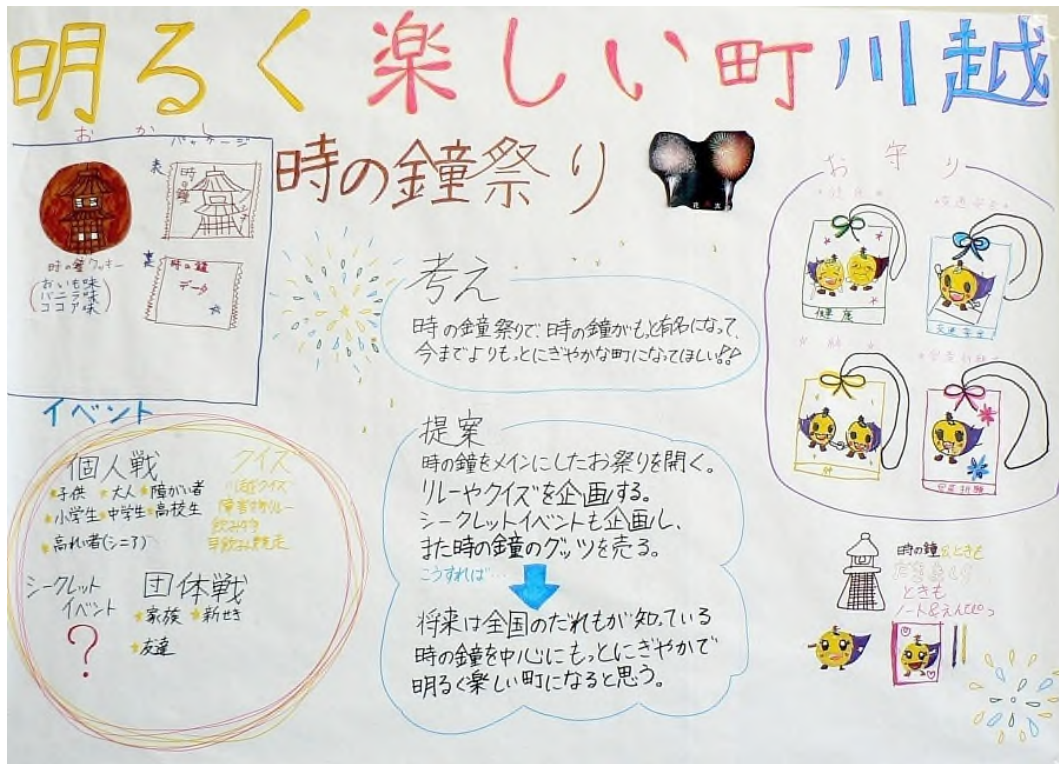 明るく楽しい町川越
時の鐘祭り
おかし
パッケージ
表
時の鐘
時の鐘クッキー
おいも味
バニラ味
ココア味
裏
時の鐘
データ
考え
時の鐘祭りで、時の鐘がもっと有名になって、
今までよりもっとにぎやかな町になってほしい!!
提案
時の鐘をメインにしたお祭りを開く。
リレーやクイズを企画する。
シークレットイベントも企画し、
また時の鐘のグッツを売る。
こうすれば…
将来は全国のだれもが知っている
時の鐘を中心にもっとにぎやかで
明るく楽しい町になると思う。
イベント
個人戦
子供 大人 障がい者
小学生 中学生 高校生
高れい者(シニア)
クイズ
シークレット
イベント
?
団体戦
家族 新せき
友達
お守り
健康
交通安全
時の鐘&ときも
ときも
ノート&えんぴつ